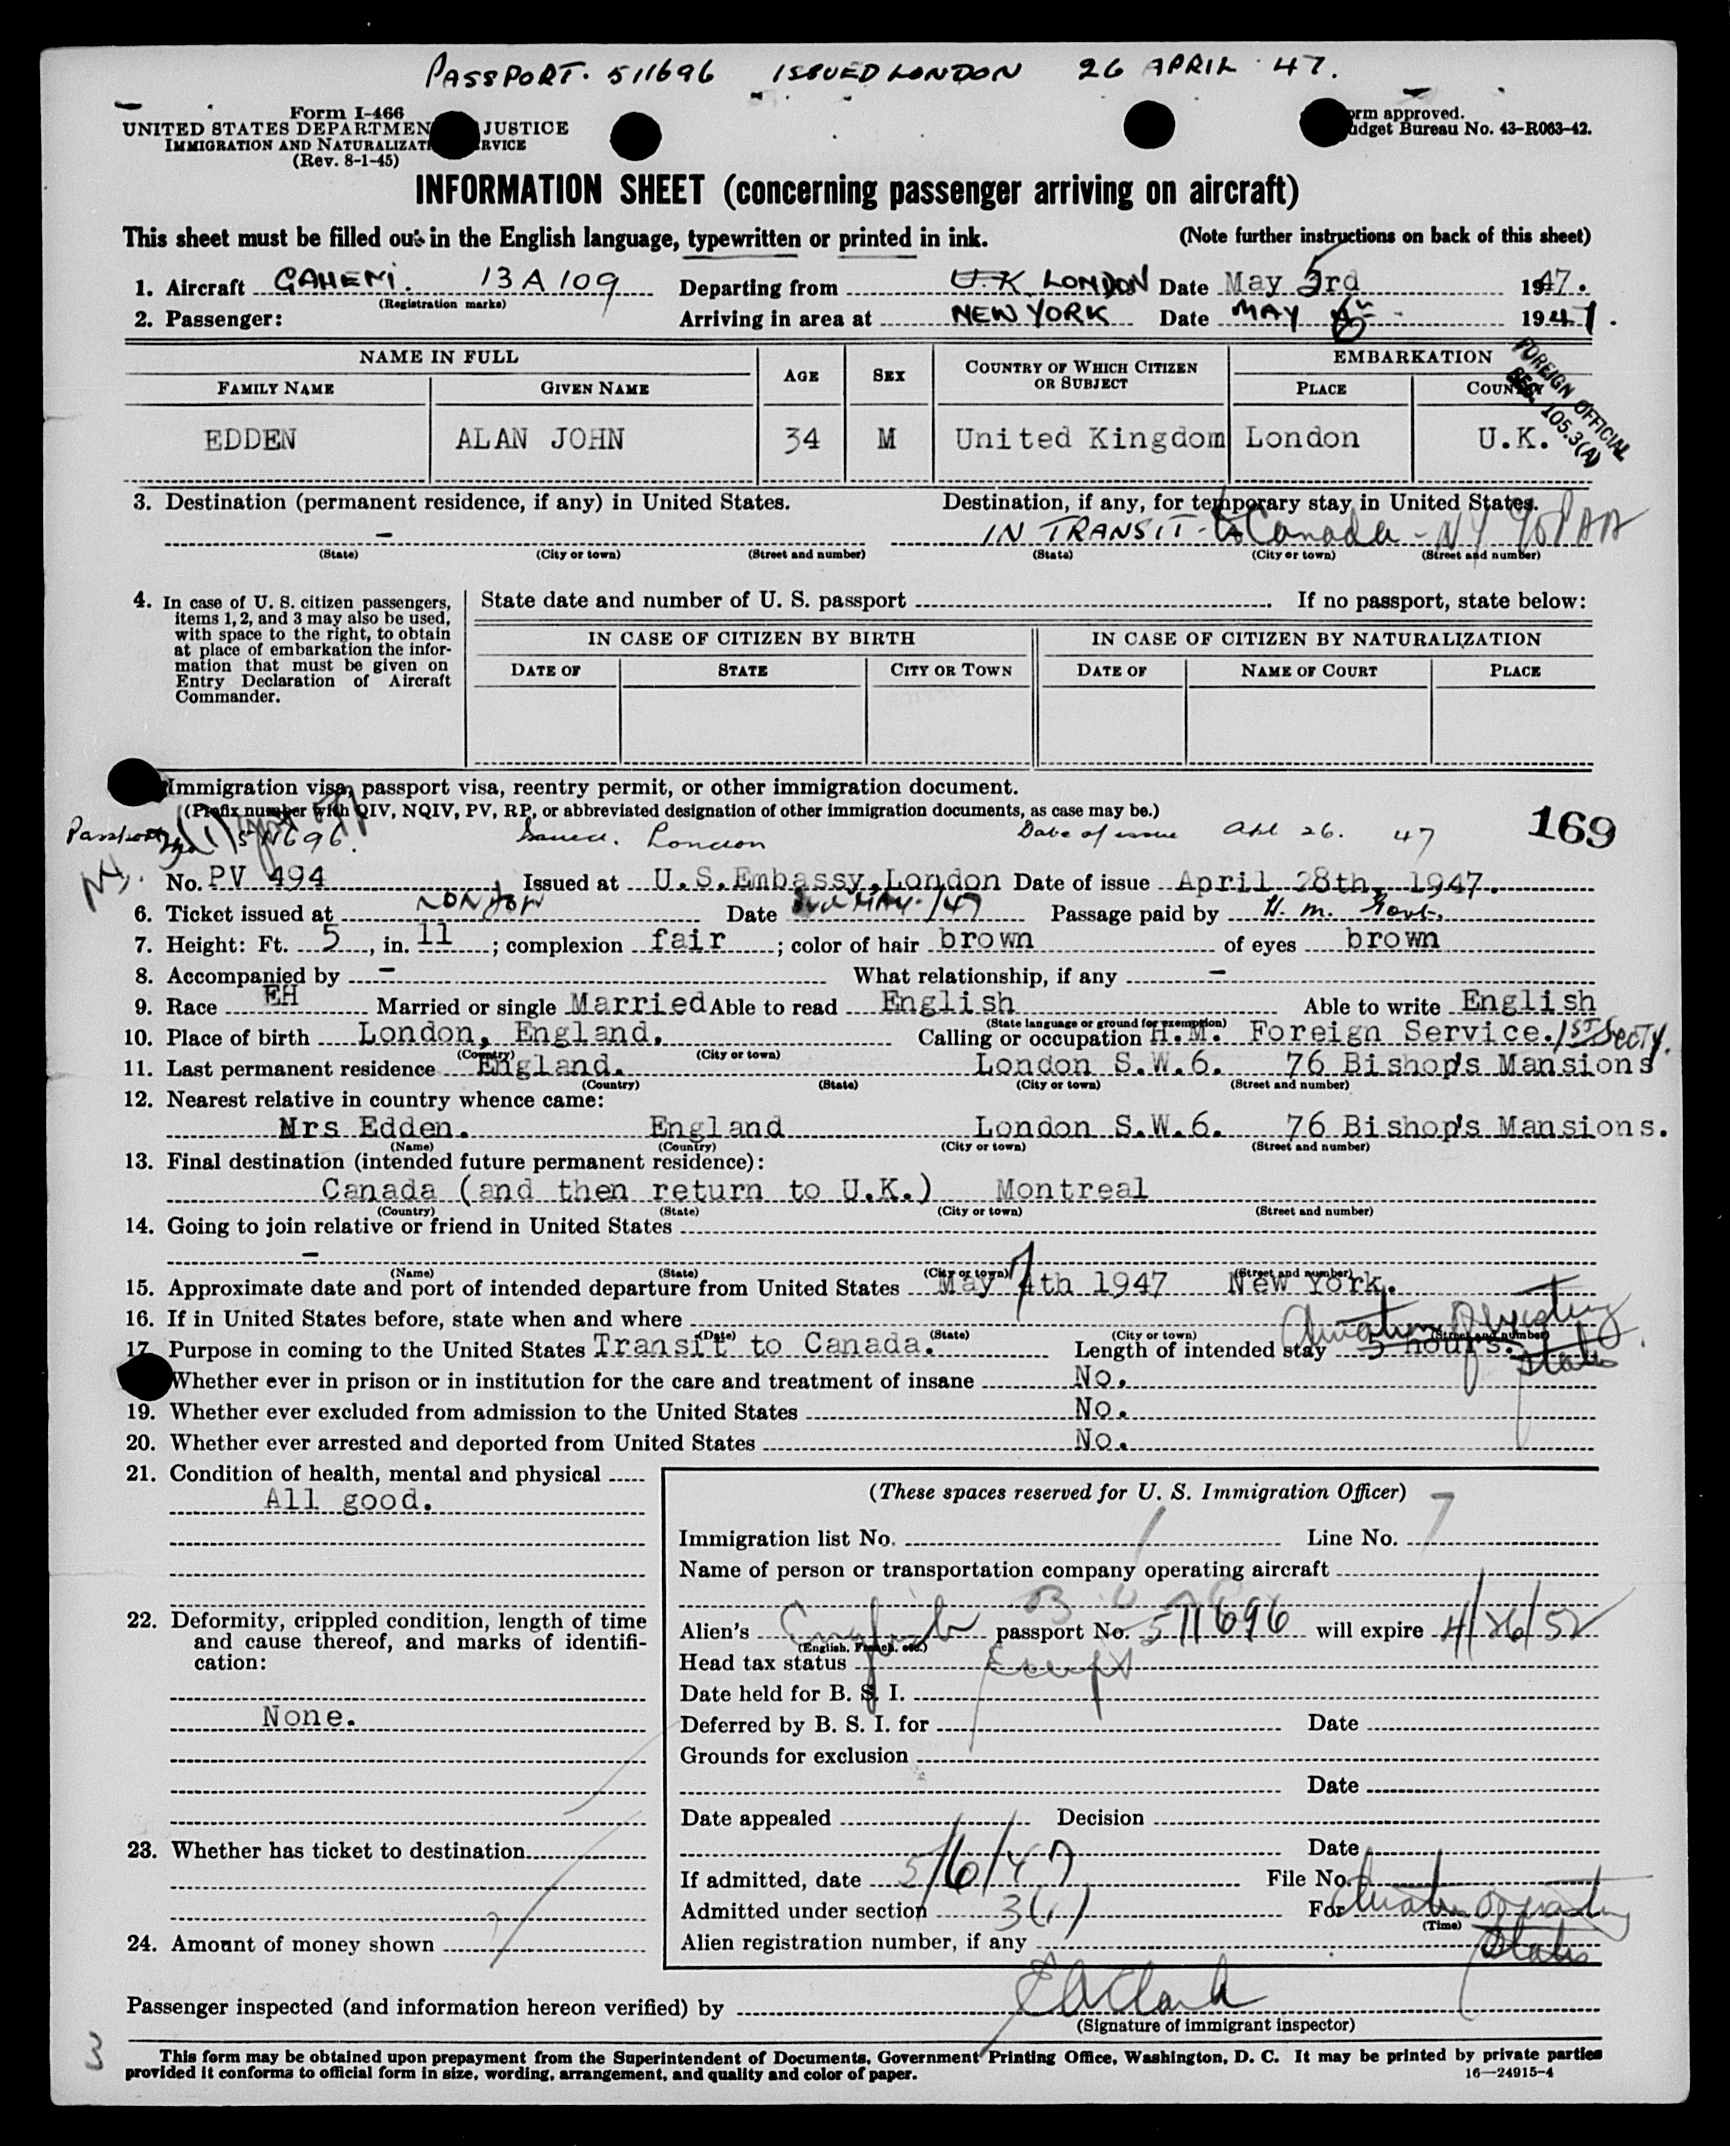 PASSPORT. 511696 ISSUED LONDON 26 APRIL 47.
Form I-466
UNITED STATES DEPARTMEN JUSTICE
IMMIGRATION AND NATURALIZAT RVICE
(Rev. 8-1-45)
orm approved.
udget Bureau No. 43-R063-42.
INFORMATION SHEET (concerning passenger arriving on aircraft)
This sheet must be filled out in the English language, typewritten or printed in ink. (Note further instructions on back of this sheet)
1. Aircraft GAHEMI. 13A109 Departing from U.K LONDON Date May 3rd 5 1947.
(Registration marks)
2. Passenger: Arriving in area at NEW YORK Date MAY 6 1947.
NAME IN FULL
FAMILY NAME GIVEN NAME AGE SEX COUNTRY OF WHICH CITIZEN OR SUBJECT EMBARKATION PLACE COUNTRY
FOREIGN OFFICIAL
REG. 105.3(A)
EDDEN ALAN JOHN 34 M United Kingdom London U.K.
3. Destination (permanent residence, if any) in United States. Destination, if any, for temporary stay in United States.
- IN TRANSIT - to Canada - NY % PAA
(State) (City or town) (Street and number) (State) (City or town) (Street and number)
4. In case of U. S. citizen passengers, items 1, 2, and 3 may also be used, with space to the right, to obtain at place of embarkation the information that must be given on Entry Declaration of Aircraft Commander.
State date and number of U. S. passport . If no passport, state below:
IN CASE OF CITIZEN BY BIRTH IN CASE OF CITIZEN BY NATURALIZATION
DATE OF STATE CITY OR TOWN DATE OF NAME OF COURT PLACE
Immigration visa, passport visa, reentry permit, or other immigration document.
(Prefix number with QIV, NQIV, PV, RP, or abbreviated designation of other immigration documents, as case may be.)
169
Passport 511696. Issued. London Date of issue Apl 26. 47
No. PV 494 Issued at U.S.Embassy,London Date of issue April 28th, 1947.
6. Ticket issued at LONDON Date MAY. /47 Passage paid by H. M. Govt.
7. Height: Ft. 5, in. 11; complexion fair; color of hair brown of eyes brown
8. Accompanied by - What relationship, if any -
9. Race EH Married or single Married Able to read English Able to write English
(State language or ground for exemption)
10. Place of birth London, England. Calling or occupation H.M. Foreign Service. 1ST Secty.
(Country) (City or town)
11. Last permanent residence England. London S.W.6. 76 Bishop's Mansions
(Country) (State) (City or town) (Street and number)
12. Nearest relative in country whence came:
Mrs Edden. England London S.W.6. 76 Bishop's Mansions.
(Name) (Country) (City or town) (Street and number)
13. Final destination (intended future permanent residence):
Canada (and then return to U.K.) Montreal
(Country) (State) (City or town) (Street and number)
14. Going to join relative or friend in United States
-
(Name) (State) (City or town) (Street and number)
15. Approximate date and port of intended departure from United States May 4th 7 1947 New York.
16. If in United States before, state when and where
(Date) (State) (City or town) (Street and number)
17. Purpose in coming to the United States Transit to Canada. Length of intended stay 5 hours. Duration Diplomatic Status
Whether ever in prison or in institution for the care and treatment of insane No.
19. Whether ever excluded from admission to the United States No.
20. Whether ever arrested and deported from United States No.
21. Condition of health, mental and physical
All good.
22. Deformity, crippled condition, length of time and cause thereof, and marks of identification:
None.
23. Whether has ticket to destination
24. Amount of money shown
(These spaces reserved for U. S. Immigration Officer)
Immigration list No. 1 Line No. 7
Name of person or transportation company operating aircraft
Alien's English passport No. 511696 will expire 4/26/52
(English, French, etc.)
Head tax status Exempt
Date held for B. S. I.
Deferred by B. S. I. for Date
Grounds for exclusion
Date
Date appealed Decision
Date
If admitted, date 5/6/47 File No.
Admitted under section 3(1) For Status
(Time)
Alien registration number, if any
Passenger inspected (and information hereon verified) by E A Clark
(Signature of immigrant inspector)
3
This form may be obtained upon prepayment from the Superintendent of Documents, Government Printing Office, Washington, D. C. It may be printed by private parties
provided it conforms to official form in size, wording, arrangement, and quality and color of paper. 16—24915-4